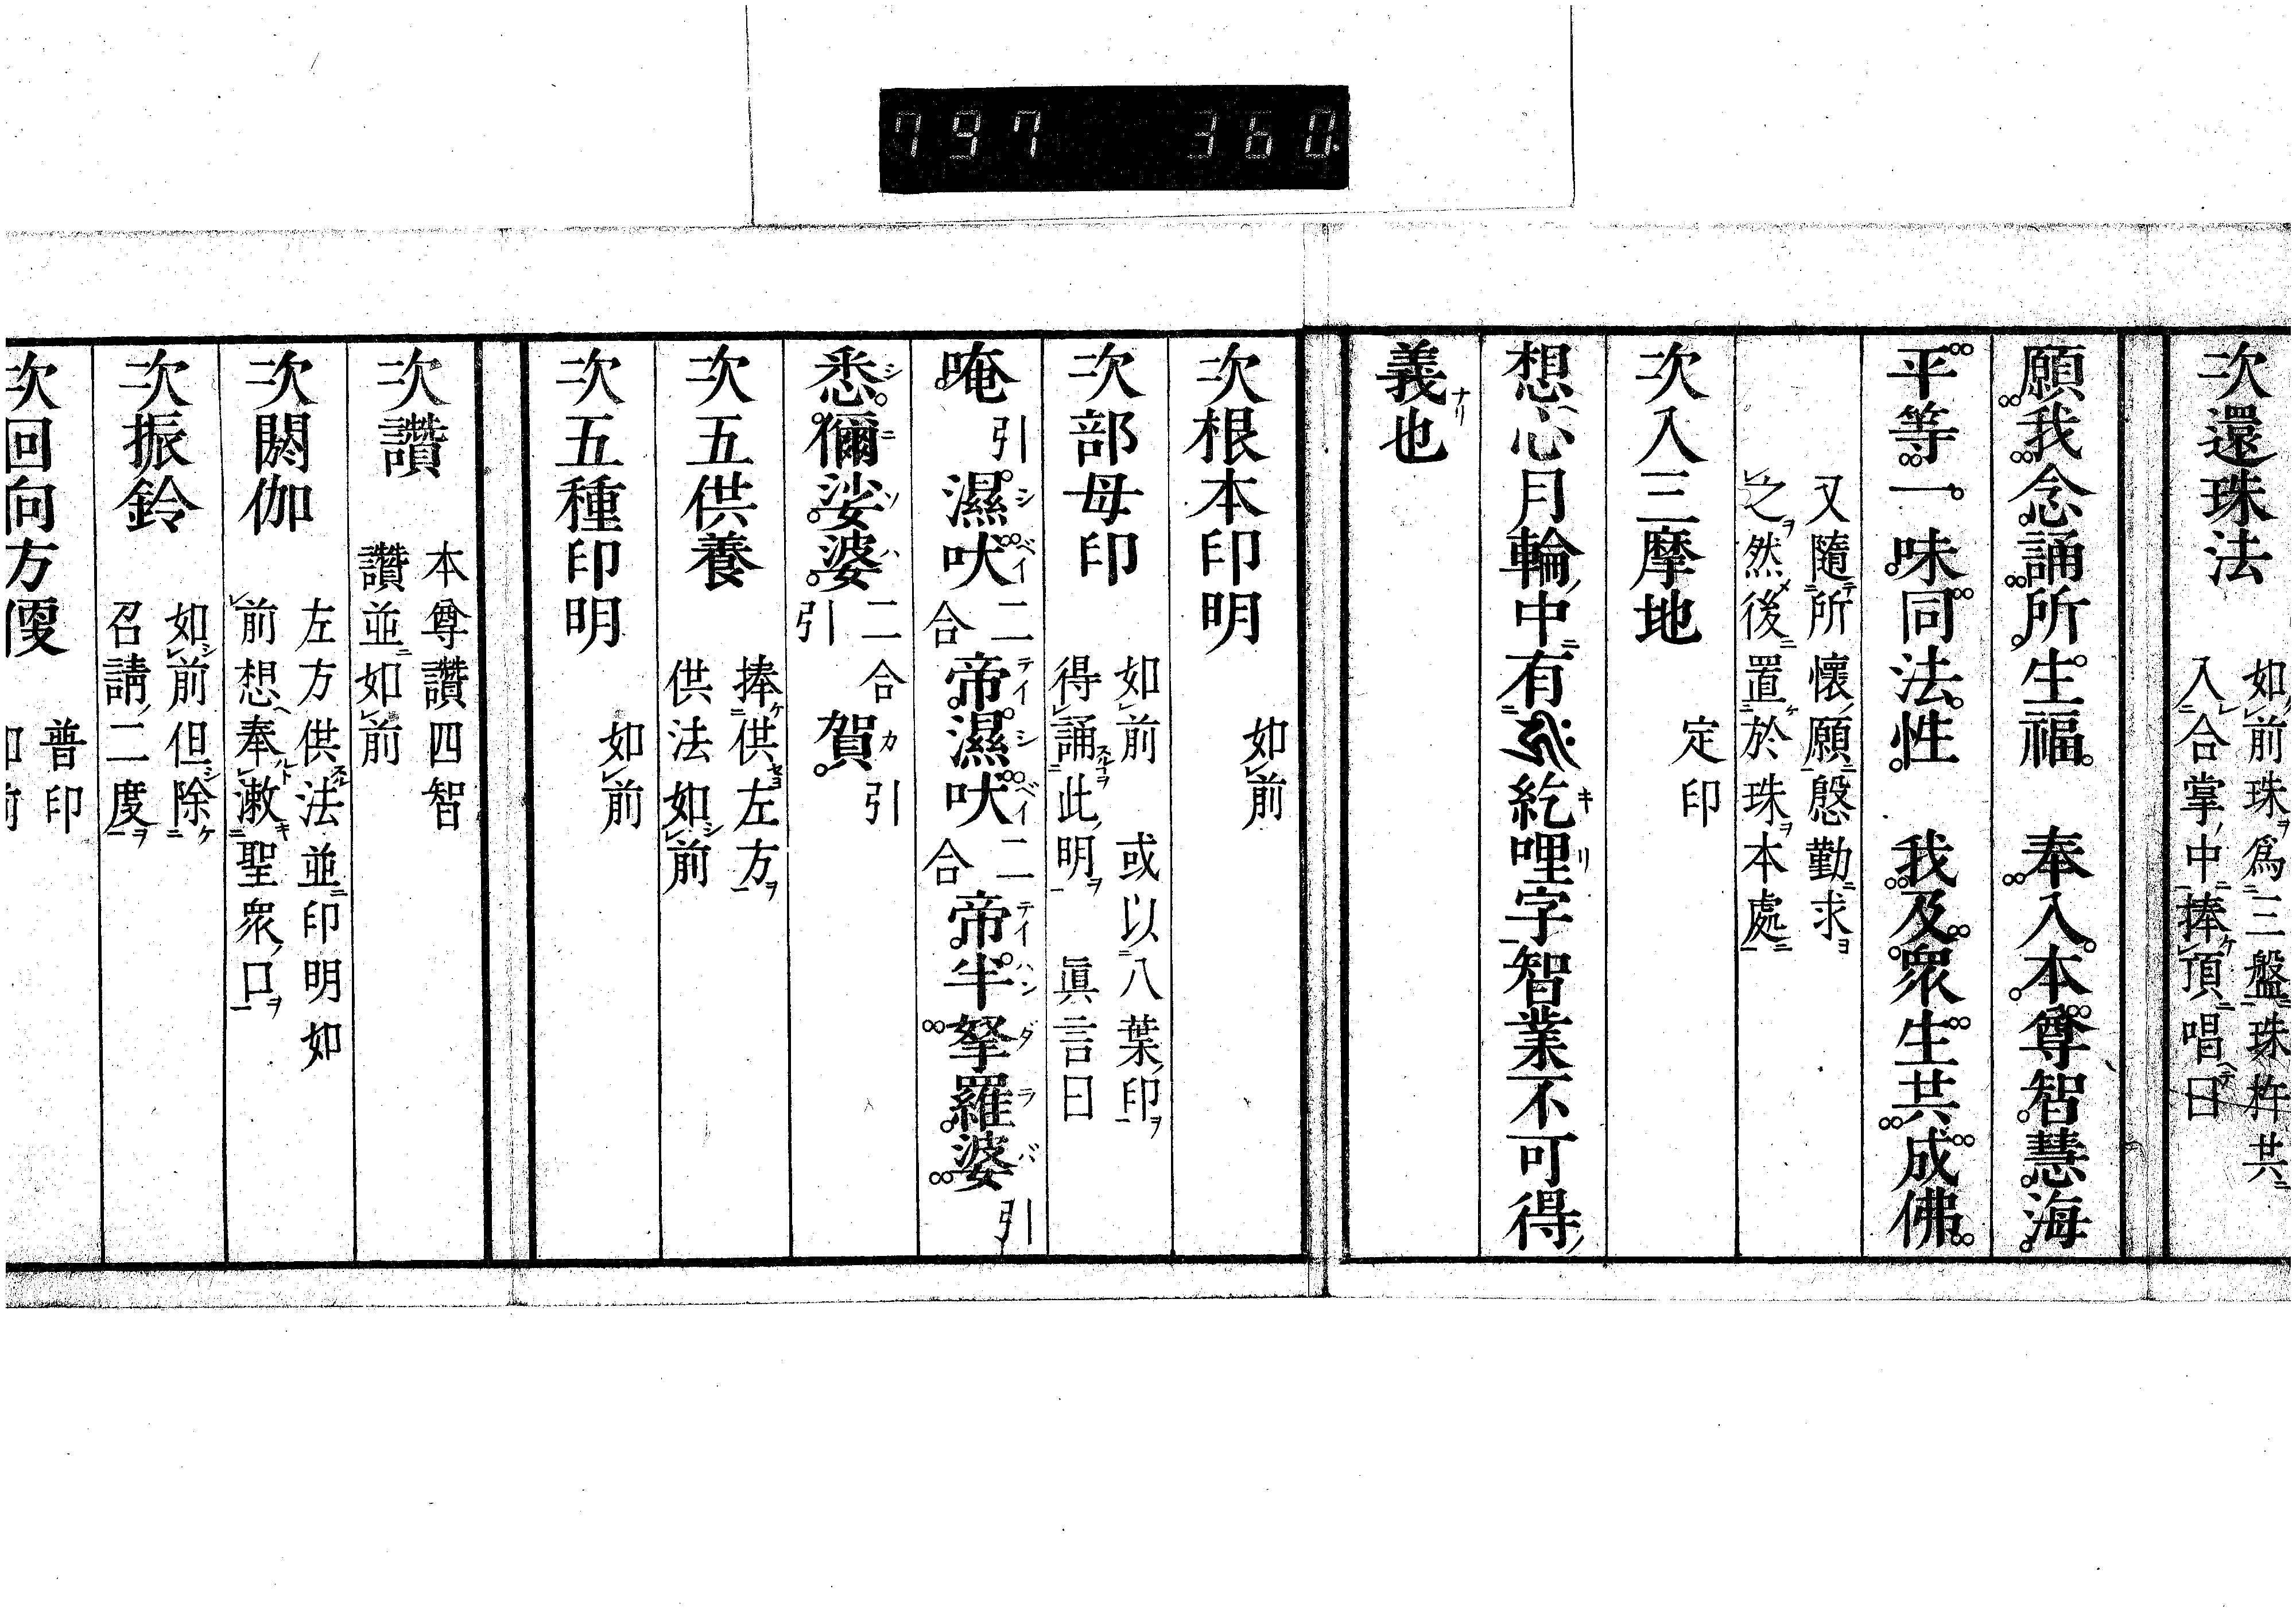 797 360
次還珠法 如前珠ヲ爲三盤珠杵共
入合掌中捧頂唱曰
願我念誦所生福 奉入本尊智慧海
平等一味同法性 我及衆生共成佛
又隨所懷願慇懃求
之然後置於珠本處
次入三摩地 定印
想心月輪中有紇哩字智業不可得
義也
次根本印明 如前
次部母印 如前 或以八葉印ヲ
得誦此明ヲ 眞言曰
唵引濕吠二合帝濕吠二合帝半拏羅婆引
悉彌娑婆二合引賀引
次五供養 捧供左方ヲ
供法如前
次五種印明 如前
次讚 本尊讚四智
讚並如前
次閼伽 左方供法並印明如
前想奉漱聖衆口ヲ
次振鈴 如前但除
召請二度ヲ
次回向方便 普印
如前